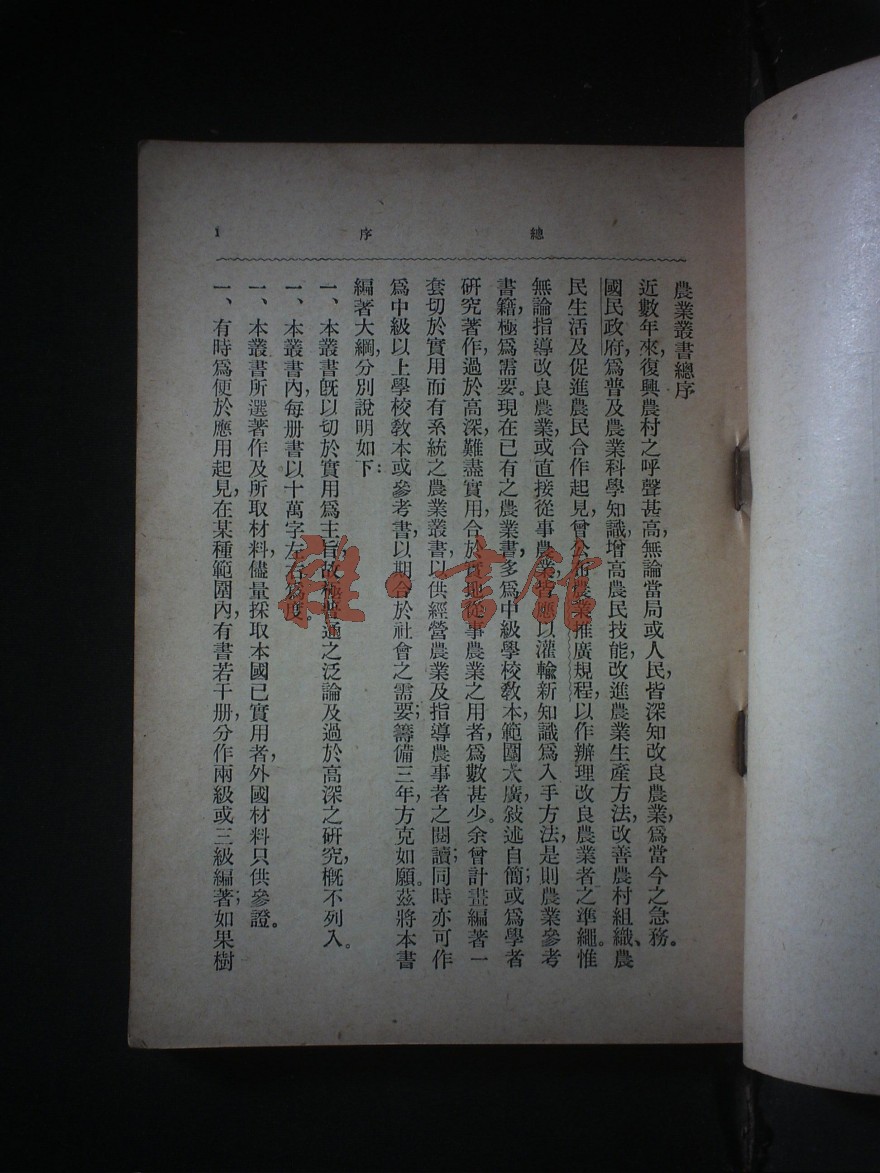 總序
1
農業叢書總序
近數年來,復興農村之呼聲甚高,無論當局或人民,皆深知改良農業,爲當今之急務。
國民政府,爲普及農業科學知識,增高農民技能,改進農業生產方法,改善農村組織、農
民生活及促進農民合作起見,曾公布農業推廣規程,以作辦理改良農業者之準繩。惟
無論指導改良農業,或直接從事農業,皆應以灌輸新知識爲入手方法,是則農業參考
書籍,極爲需要。現在已有之農業書,多爲中級學校敎本,範圍太廣,敍述自簡;或爲學者
研究著作,過於高深,難盡實用,合於實地從事農業之用者,爲數甚少。余曾計畫編著一
套切於實用而有系統之農業叢書,以供經營農業及指導農事者之閱讀;同時亦可作
爲中級以上學校敎本或參考書,以期合於社會之需要;籌備三年,方克如願。茲將本書
編著大綱,分別說明如下:
一、本叢書旣以切於實用爲主旨,故極普通之泛論及過於高深之研究,槪不列入。
一、本叢書內,每册書以十萬字左右爲度。
一、本叢書所選著作及所取材料,儘量採取本國已實用者,外國材料只供參證。
一、有時爲便於應用起見,在某種範圍內,有書若干册,分作兩級或三級編著;如果樹
雜·書館